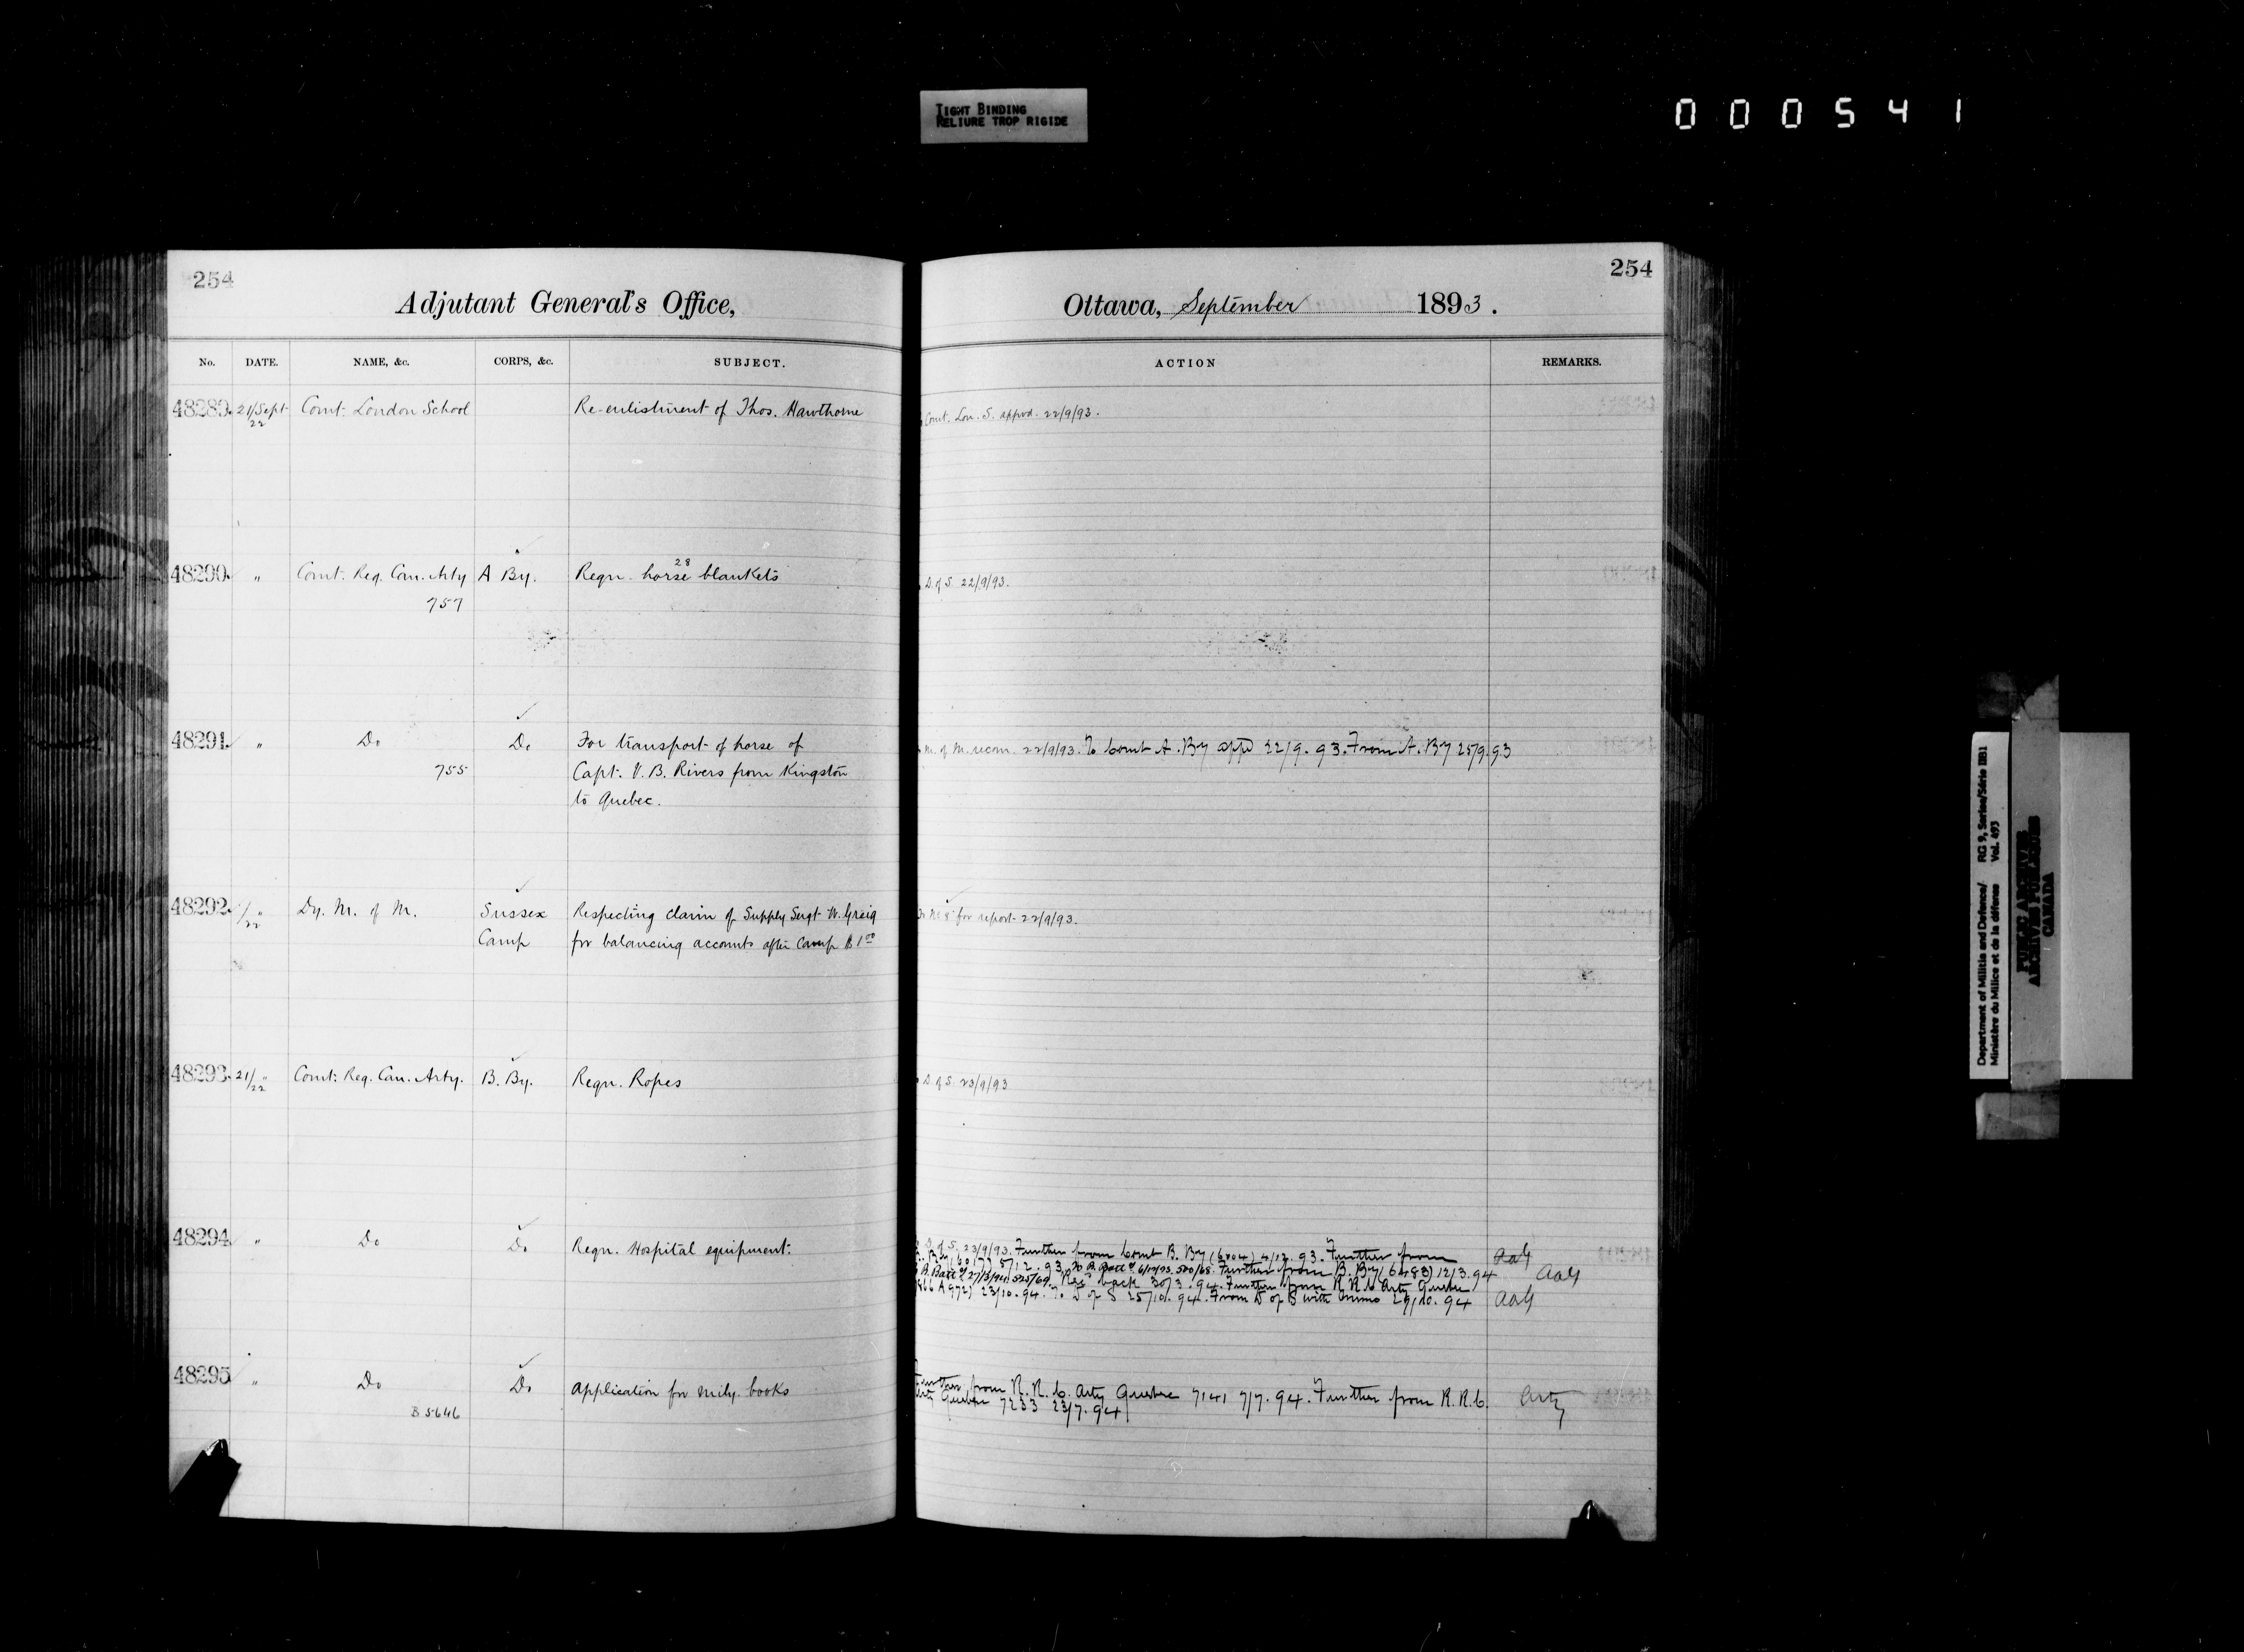 TIGHT BINDING
RELIURE TROP RIGIDE
000541
254
Adjutant General's Office,
No. DATE. NAME, &c. CORPS, &c. SUBJECT.
48289. 21/Sept 22 Comt. London School Re-enlistment of Thos. Hawthorne
48290. " Comt. Reg. Can. Arty A By. Regn. 28 horse blankets
757
48291. " Do Do For transport of horse of
755 Capt. V. B. Rivers from Kingston
to Quebec.
48292. /22 " Dy. M. of M. Sussex Respecting claim of Supply Sergt W. Greig
Camp for balancing accounts after Camp $1 00
48293. 21/22 " Comt. Reg. Can. Arty. B. By. Regn. Ropes
48294. " Do Do Regn. Hospital equipment.
48295 " Do Do Application for mily. books
B 5646
254
Ottawa, September 1893.
ACTION REMARKS.
Comt. Lon. S. appvd. 22/9/93.
D. of S. 22/9/93.
M. of M. recom. 22/9/93. To Comt A. By appd 22/9.93. From A. By 25/9.93
No 8 for report 22/9/93.
D. of S. 23/9/93
D. of S. 23/9/93. Further from Comt B. By (6004) 4/12.93. Further from AAG
5/12.93. To B. Batt 6/12/93. 520/68. Further from B. By (6483) 12/3.94 AAG
B. Batt 27/3/94. 525/69. Recd back 30/3.94. Further from R.R.C. Arty Quebec
A 972) 23/10.94. To D of S 25/10.94. From D of S with memo 29/10.94 AAG
Further from R.R.C. Arty Quebec 7141 7/7.94. Further from R.R.C. Arty
Arty Quebec 7233 23/7.94
Department of Militia and Defence/ RG 9, Series/Série IIB1
Ministère du Milice et de la défense Vol. 493
PUBLIC ARCHIVES
ARCHIVES PUBLIQUES
CANADA